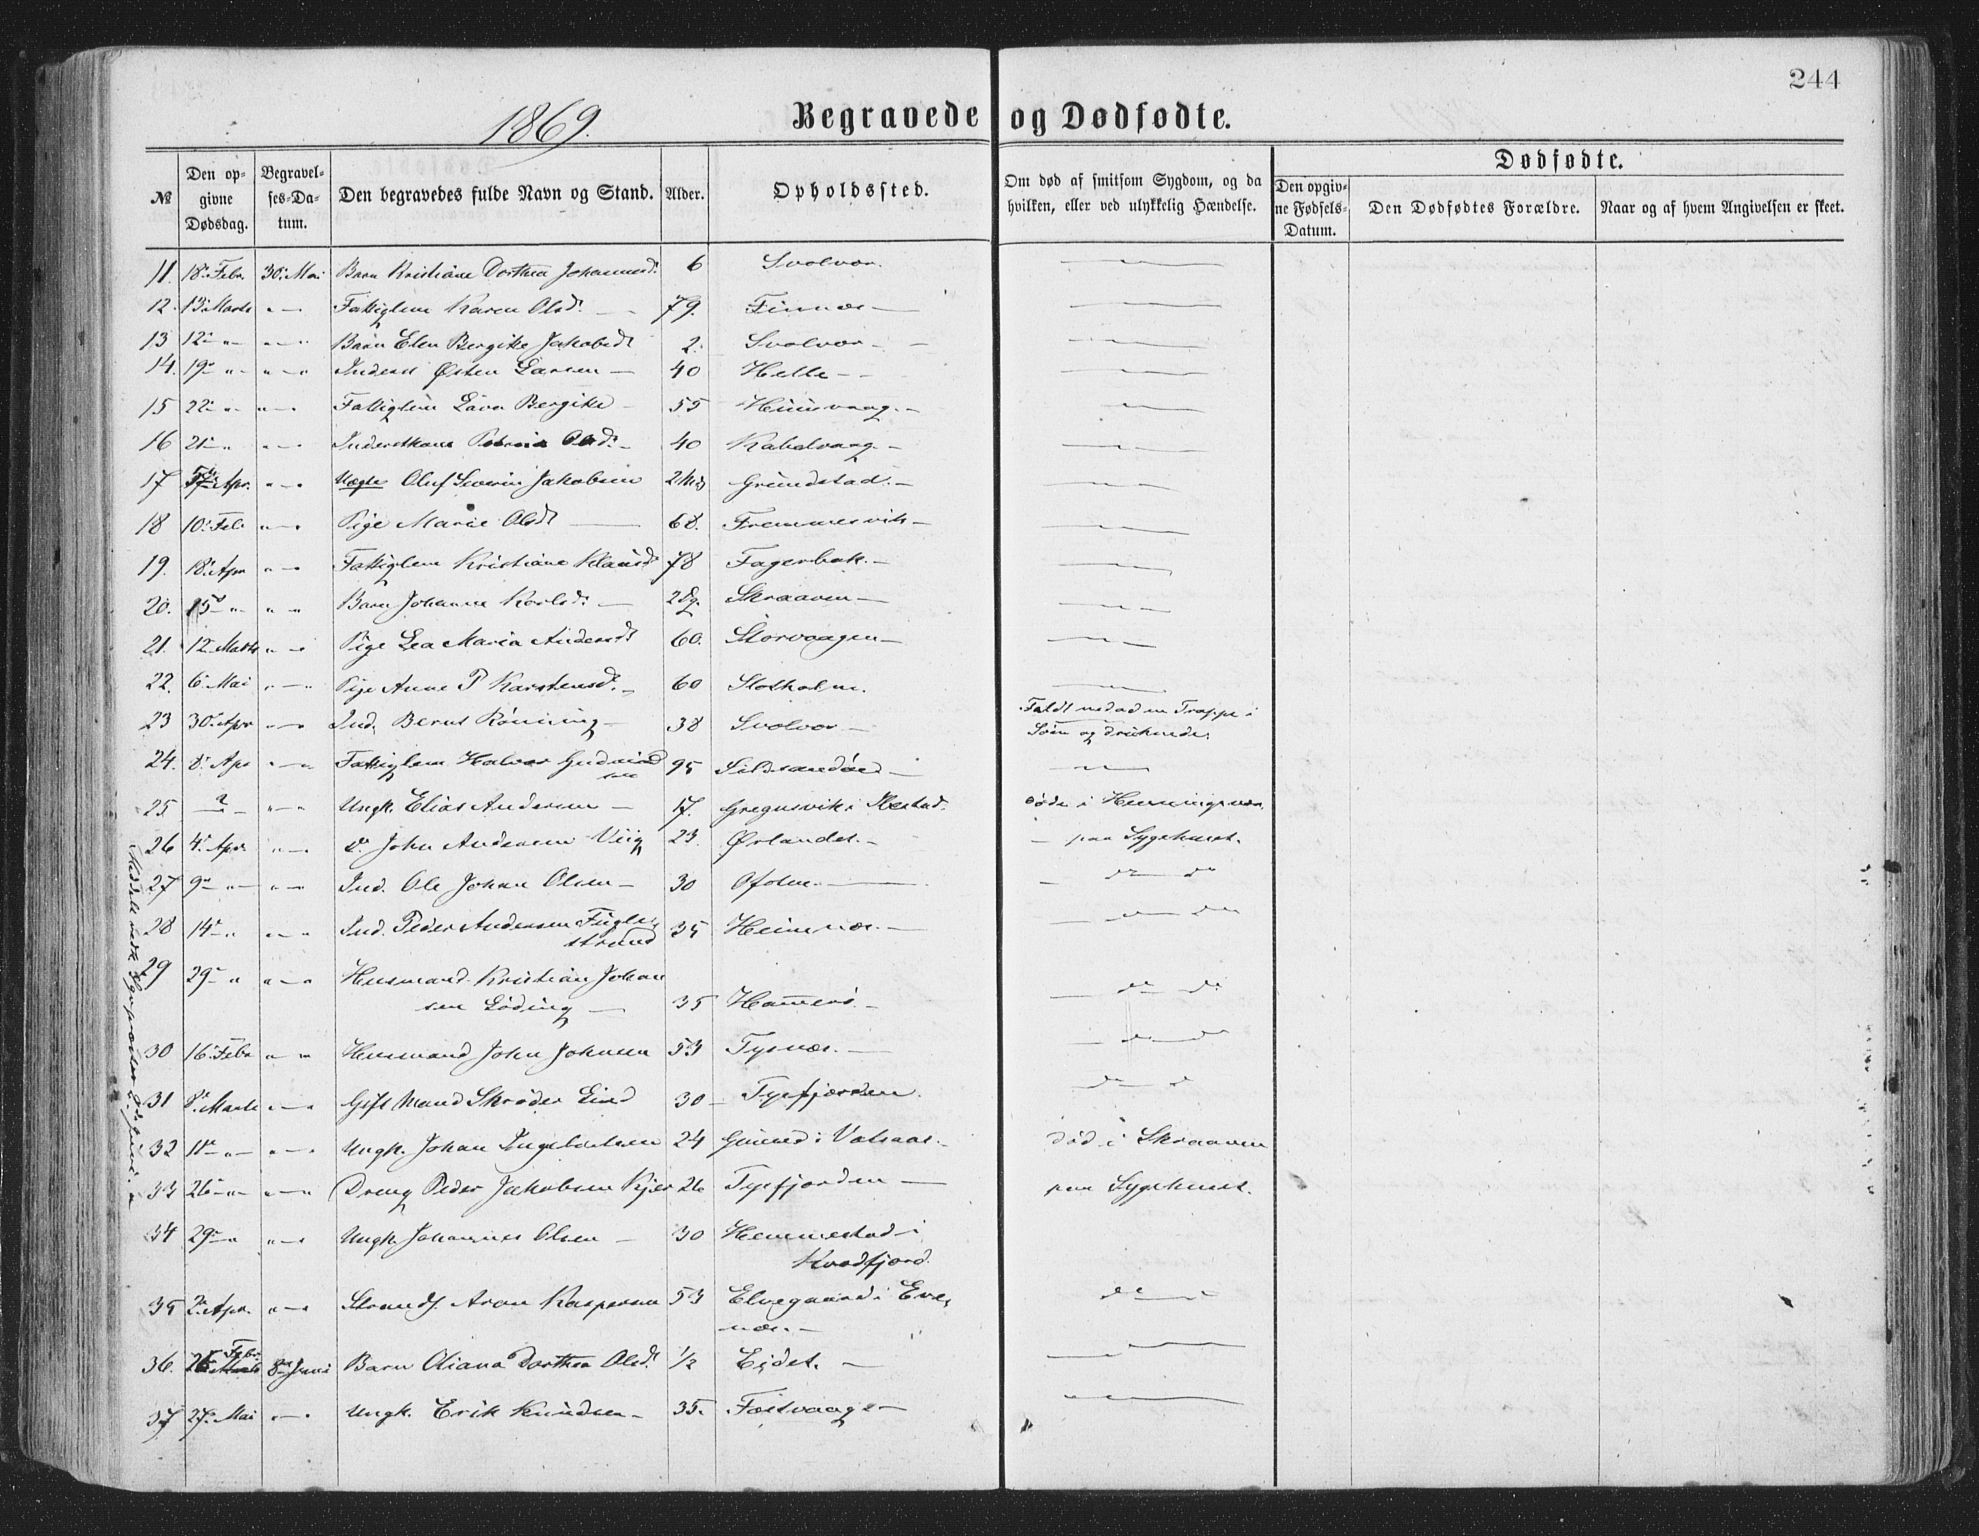 244
1869.
Begravede og Dødfødte.
Dødfødte.
№ Den opgivne Dødsdag. Begravelses-Datum. Den begravedes fulde Navn og Stand. Alder. Opholdssted. Om død af smitsom Sygdom, og da hvilken, eller ved ulykkelig Hændelse. Den opgivne Fødsels-Datum. Den Dødfødtes Forældre. Naar og af hvem Angivelsen er skeet.
11. 18. Febr. 30. Mai Barn Kristiane Dorthea Johannesd. 6 Svolvær.
12. 13. Marts " Fattiglem Karen Olsd. 79. Finnæs
13 12 " " Barn Elen Bergitte Jakobsd 2. Svolvær
14. 19 " " Inderst Østen Larsen 40 Helle
15 22 " " Fattiglem Bergitte 55
16 21 " " Olsd. 40 Kabelvaag
17 Apr. " Uægte Oluf Severin Jakobsen 2 Grundstad.
18 10. Feb " Pige Marie Olsd 68. Fremmesvik
19. 18. Apr " Fattiglem Kristiane Klausd 78 Fagerbak.
20. 15 " " Barn Johanna Karlsd. 2 Dg. Skraaven
21. 12 Marts " Pige Lea Maria Andersd 60. Storvaagen
22. 6. Mai " Pige Anne P Karstensd. 60 Slotholm.
23 30. Apr " Ind. Bernt Rönning 38 Svolvær Faldt nedad en Trappe i
Søen og druknede.
24. 8. Apr " Fattiglem Halvor 95
25. ? " Ungk. Elias Andersen 17. Gregusvik i døde i Henningsvær
26 4. Apr. " d. John Andersen Viig 23. Ørlandet. paa Sygehuset.
27 9 " " Ind. Ole Johan Olsen 30 Ofoten. do do
28 14 " " Ind. Peder Andersen Fugle-
strand 35 do do
29 29 " " Husmand Kristian Johan
sen Löding 35 Hamerö. do do
30 16. Febr " Husmand John Johnsen 53 Tysnæs. do do
31 8. Marts " Gift Mand Skrøder 30 Tysfjorden. do d
32 11 " " Ungk. Johan Ingebrigtsen 24 død i Skraaven
33 26 " " Dreng Peder Jakobsen Kjær 26 Tysfjorden paa Sygehuset.
34 29 " " Ungk. Johannes Olsen 30 Hemmestad i
Kvædfjord.
35 2. Apr. " Strands. Aron Kaspersen 53 Elvegaard i Eve-
næs. do
36. 26 Febr 8 Juni Barn Oliana Dorthea Olsd. 1/2 Eidet.
37 27. Mai " Ungk. Erik Knudsen 35. Festvaag